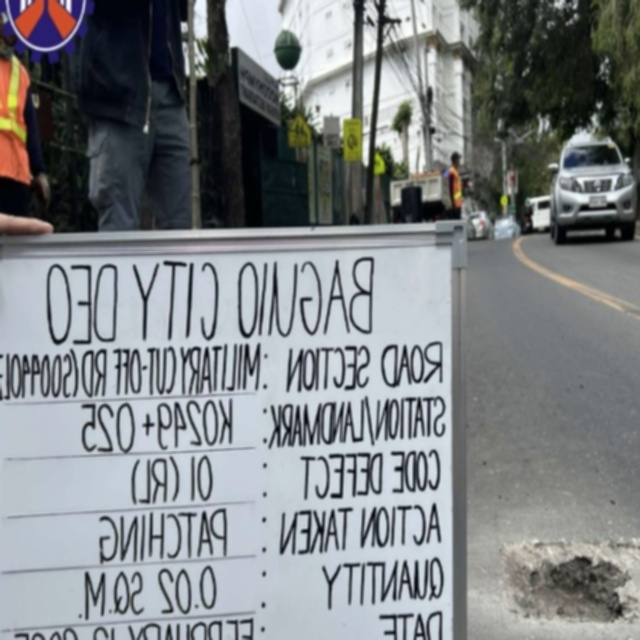 BAGUIO CITY DEO
ROAD SECTION : MILITARY CUT-OFF RD (S00440
STATION/LANDMARK: K0249+025
CODE DEFECT : 01 (RL)
ACTION TAKEN : PATCHING
QUANTITY : 0.02 SQ.M.
DATE : FEBRUARY 12,